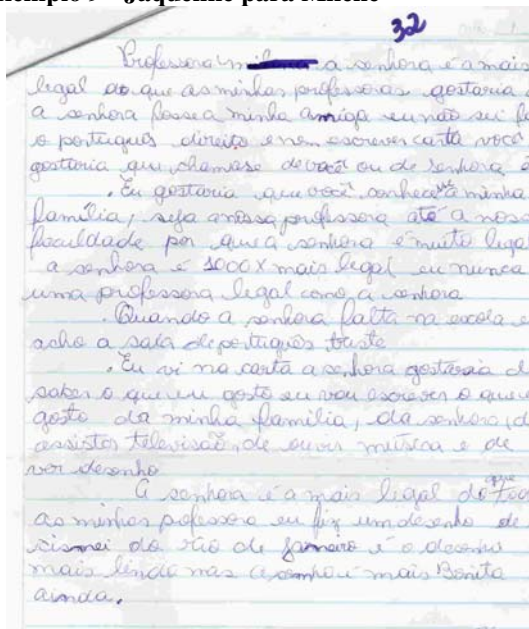 32
Professora a senhora é a mais
legal do que as minhas professoras gostaria
a senhora fosse a minha amiga eu não sei fa
o português direito e nem escrever carta você
gostaria que chamase de você ou de senhora
. Eu gostaria que você conhece a minha
família, seja a nossa professora até a noss
faculdade por que a senhora é muito legal
a senhora é 1000x mais legal eu nunca
uma professora legal como a senhora
. Quando a senhora falta na escola e
acho a sala de português triste
. Eu vi na carta a senhora gostaria d
saber o que eu gosto eu vou escrever o que e
gosto da minha família, da senhora, d
assistir televisão, de ouvir música e de
ver desenho
A senhora é a mais legal do que
as minhas pofessora eu fiz um desenho de
do rio de Janeiro é o desenho
mais lindo mas a senhora é mais Bonita
ainda.